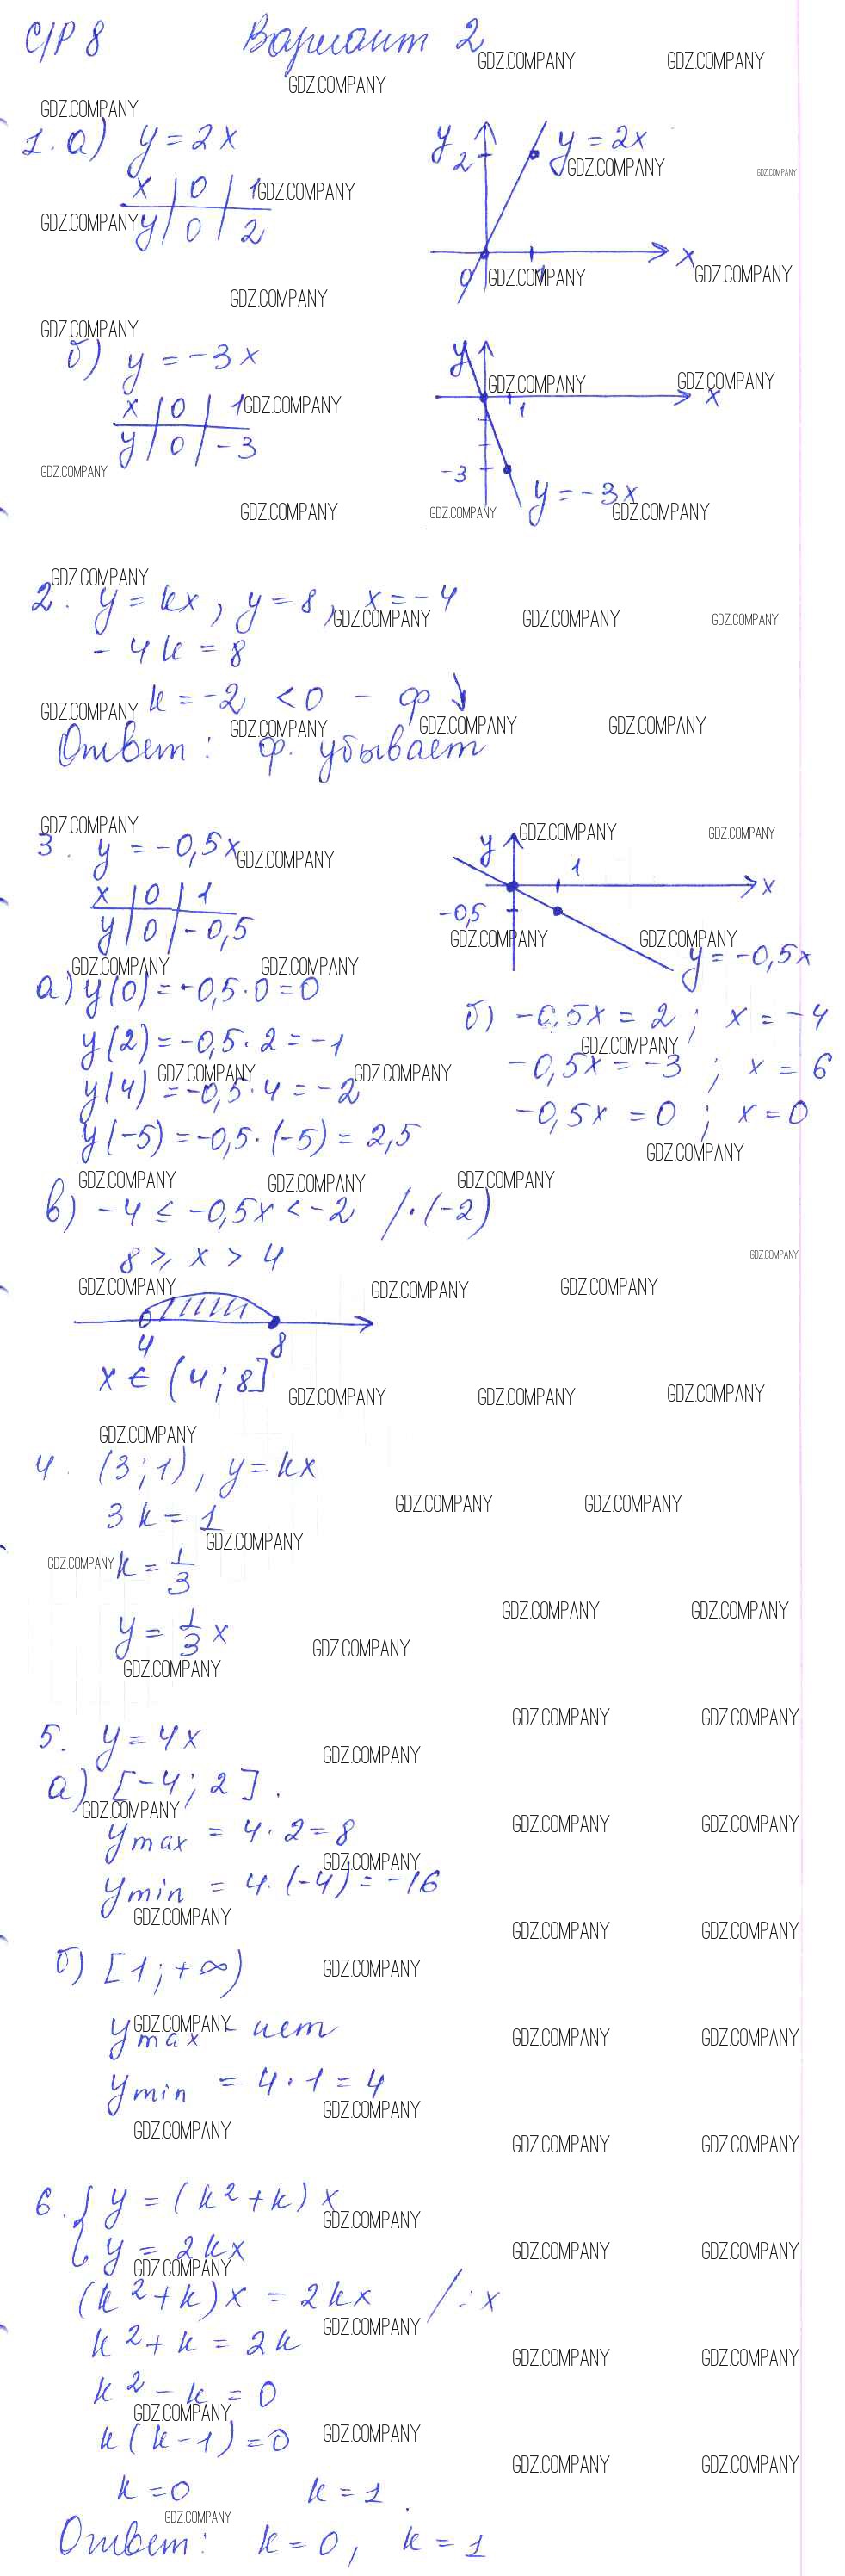 С/Р 8 Вариант 2
1. а) y = 2x
x | 0 | 1
y | 0 | 2
y 2 y = 2x
0 1 x
б) y = -3x
x | 0 | 1
y | 0 | -3
y
1 x
-3
y = -3x
2. y = kx, y = 8, x = -4
-4k = 8
k = -2 < 0 - ф ↓
Ответ: ф. убывает
3. y = -0,5x
x | 0 | 1
y | 0 | -0,5
y 1 x
-0,5
y = -0,5x
а) y(0) = -0,5·0 = 0
y(2) = -0,5·2 = -1
y(4) = -0,5·4 = -2
y(-5) = -0,5·(-5) = 2,5
б) -0,5x = 2; x = -4
-0,5x = -3; x = 6
-0,5x = 0; x = 0
в) -4 ≤ -0,5x < -2 /·(-2)
8 ≥ x > 4
4 8
x ∈ (4; 8]
4. (3; 1), y = kx
3k = 1
k = 1/3
y = 1/3 x
5. y = 4x
а) [-4; 2].
y max = 4·2 = 8
y min = 4·(-4) = -16
б) [1; +∞)
y max - нет
y min = 4·1 = 4
6. { y = (k² + k)x
y = 2kx
(k² + k)x = 2kx /:x
k² + k = 2k
k² - k = 0
k(k - 1) = 0
k = 0 k = 1.
Ответ: k = 0, k = 1
GDZ.COMPANY